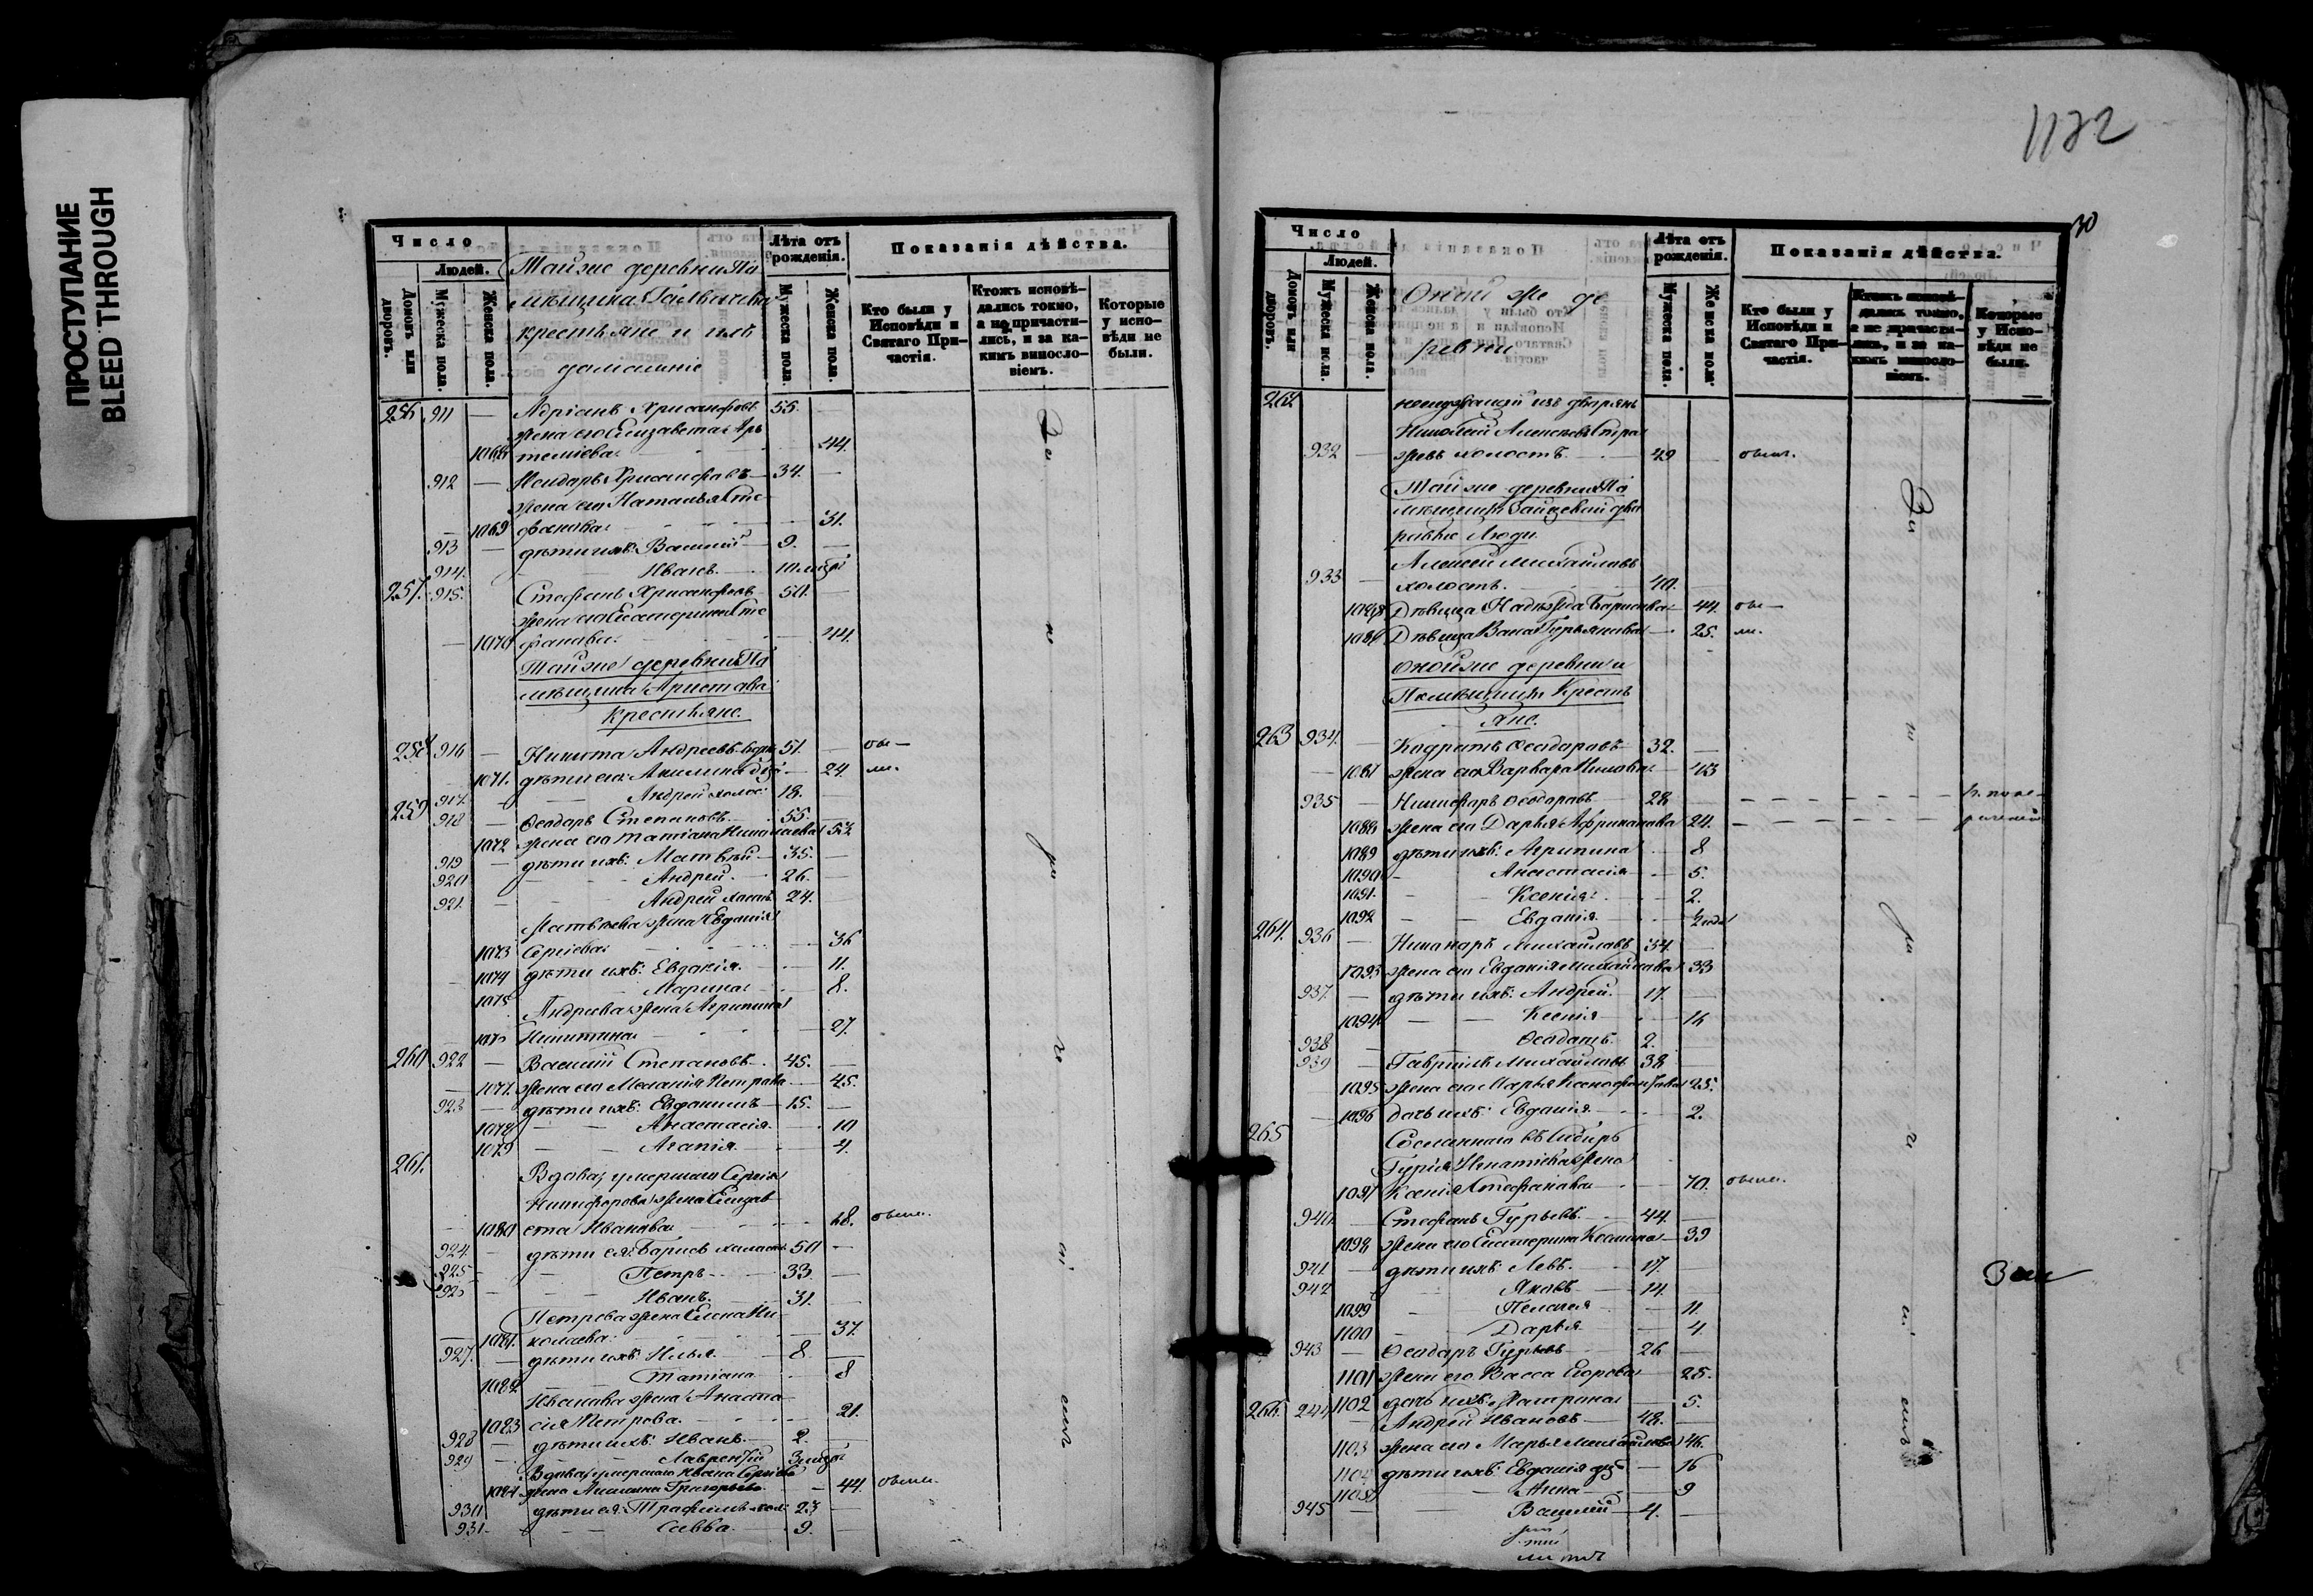 ПРОСТУПАНИЕ
BLEED THROUGH
1132
30
Число
Людей.
Домовъ или дворовъ.
Мужеска пола.
Женска пола.
Тойже деревни По
мѣщика
крестьяне и ихъ
домашніе
Лѣта отъ рожденія.
Мужеска пола.
Женска пола.
Показанія дѣйства.
Кто были у Исповѣди и Святаго Причастія.
Ктожъ исповѣдались токмо, а не причастились, и за какимъ винословіемъ.
Которые у исповѣди не были.
256 911 — Адріанъ Хрисанфовъ 55. —
жена его Елизавета Ар
1068 теміева 44.
912 — Хрисанфовъ 34. —
жена его Наталья Сте
1069 фанова 31.
913 — дѣти ихъ: Василій 9. —
914. Иванъ
257. 915. Стефанъ Хрисанфовъ 50. —
жена его Екатерина Сте
1070 фанова 44.
Тойже деревни По
мѣщика Аристова
Крестьяне.
258 916 — Никита Андреевъ 51. —
1071. дѣти его: Акилина 24.
917. Андрей холос: 18. —
259 918 — Ѳеодоръ Степановъ 55. —
1072 жена его Татіана Николаева 53
919 — дѣти ихъ: Матвѣй 35. —
920 Андрей 26. —
921. Андрей 24. —
Матвѣева жена Евдокія
1073 Сергіева 36
1074 дѣти ихъ: Евдокія 11.
1075 Марина 8.
Андреева жена Агрипина
1076 Никитина 27.
260 922 — Василій Степановъ 45. —
1077. жена его Меланія Петрова 45.
923 — дѣти ихъ: Евдокимъ 15. —
1078 Анастасія 10
1079 Агапія 4.
261. Вдова, умершаго Сергія
Никифорова жена Елизав
1080 ета Иванова 68.
924 — дѣти ея: Борисъ 50 —
925 — Петръ 33. —
926 — Иванъ 31. —
Петрова жена Елена Ни
1081. колаева 37.
927. — дѣти ихъ: Илья 8. —
1082 Татіана 8
Иванова жена Анаста
1083 сія Петрова 21.
928 — дѣти ихъ: Иванъ 2. —
929 Лаврентій
Вдова умершаго Ивана Сергіева
1084 жена Акилина Григорьева 44
930 дѣти ея: Трофимъ хол: 23 —
931. Савва 9. —
Число
Людей.
Домовъ или дворовъ.
Мужеска пола.
Женска пола.
Оной же де
ревни
Лѣта отъ рожденія.
Мужеска пола.
Женска пола.
Показанія дѣйства.
Кто были у Исповѣди и Святаго Причастія.
Ктожъ исповѣдались токмо, а не причастились, и за какимъ винословіемъ.
Которые у Исповѣди не были.
262 изъ дворянъ
Николай Алексѣевъ
932 — холостъ 49
Тойже деревни По
мѣщицы дво
ровые люди
Алексей Михайловъ
933 — холостъ 40.
1085 Дѣвица Надежда Борисова 44.
1086 Дѣвица 25.
Оной же деревни и
Помѣщицы Кресть
яне.
263 934. — Кодратъ Ѳеодоровъ 32. —
1087 жена его Варвара 43
935 — Никифоръ Ѳеодоровъ 28
1088 жена его Дарья Африканова 24.
1089 дѣти ихъ: Агрипина 8
1090 Анастасія 5.
1091. Ксенія 2.
1092 Евдокія
264. 936 — Никаноръ Михайловъ 34. —
1093 жена его Евдокія Михайлова 33
937. — дѣти ихъ: Андрей 17. —
1094 Ксенія 14
938 Ѳеодотъ 2.
939 — Гавріилъ Михайловъ 38 —
1095 жена его Марья Ксенофонтова 25.
1096 дочь ихъ: Евдокія 2.
265 Сосланнаго въ Сибирь
Гурія Игнатіева жена
1097 Ксенія Стефанова 70.
940 — Стефанъ Гурьевъ 44. —
1098 жена его Екатерина Космина 39
941 — дѣти ихъ: Левъ 17. —
942 Яковъ 14. —
1099 Пелагея 11.
1100 Дарья 4.
943 — Ѳеодоръ Гурьевъ 26 —
1101 жена его Васса Егорова 25.
1102 дочь ихъ: Матрона 5.
266. 244 — Андрей Ивановъ 48. —
1103 жена его Марья Михайлова 46.
1104 дѣти ихъ: Евдокія 16
1105 Анна 9
945 — Василій 4. —